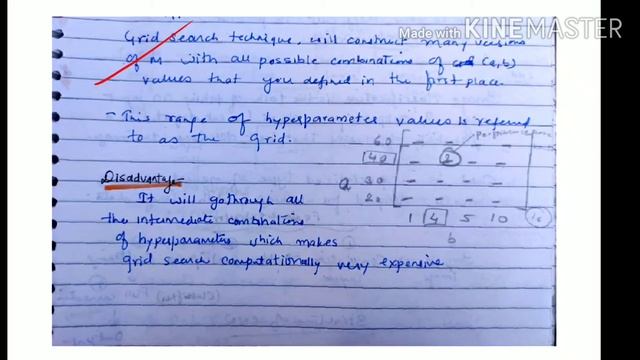 Made with KINEMASTER
Grid search technique, will construct many versions
of M with all possible combinations of (a,b)
values that you defined in the first place
- This range of hyperparameter values is referred
to as the Grid.
Disadvantage -
It will go through all
the intermediate combinations
of hyperparameters which makes
grid search computationally very expensive
60 - - - -
40 - 2 - -
a 30 - - - -
20 - - - -
1 4 5 10
b